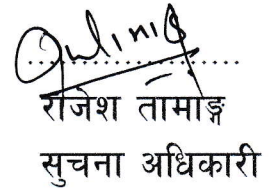 राजेश तामाङ्ग
सुचना अधिकारी